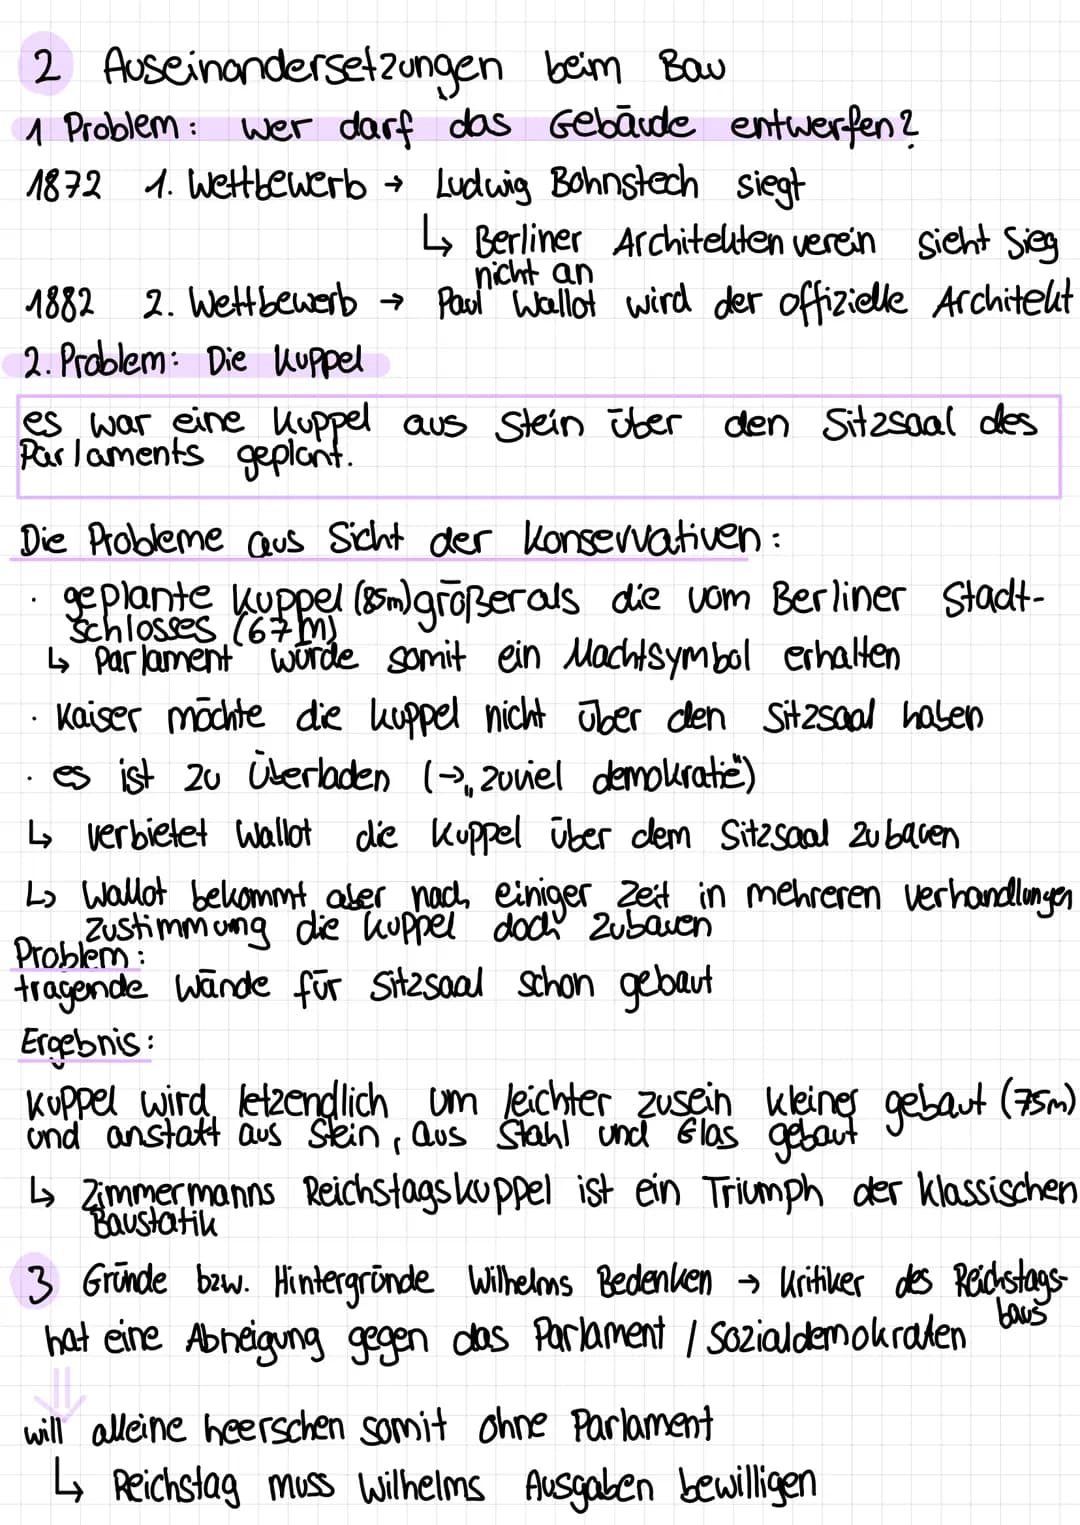 2 Auseinandersetzungen beim Bau
1 Problem: wer darf das Gebäude entwerfen?
1872 1. Wettbewerb → Ludwig Bohnstech siegt
↳ Berliner Architektenverein sieht Sieg
nicht an
1882 2. Wettbewerb → Paul Wallot wird der offizielle Architekt
2. Problem: Die Kuppel
es war eine Kuppel aus Stein über den Sitzsaal des
Parlaments geplant.
Die Probleme aus Sicht der Konservativen:
· geplante Kuppel (85m) größer als die vom Berliner Stadt-
schlosses (67m)
↳ Parlament würde somit ein Machtsymbol erhalten
· Kaiser möchte die Kuppel nicht über den Sitzsaal haben
· es ist zu überladen (→ „zuviel demokratie")
↳ verbietet Wallot die Kuppel über dem Sitzsaal zubauen
↳ Wallot bekommt aber nach einiger Zeit in mehreren Verhandlungen
Zustimmung die Kuppel doch zubauen
Problem:
tragende Wände für Sitzsaal schon gebaut
Ergebnis:
Kuppel wird letzendlich um leichter zusein kleiner gebaut (75m)
und anstatt aus Stein, aus Stahl und Glas gebaut
↳ Zimmermanns Reichstagskuppel ist ein Triumph der klassischen
Baustatik
3 Gründe bzw. Hintergründe Wilhelms Bedenken → Kritiker des Reichstags-
baus
hat eine Abneigung gegen das Parlament / Sozialdemokraten
⇓
will alleine heerschen somit ohne Parlament
↳ Reichstag muss Wilhelms Ausgaben bewilligen